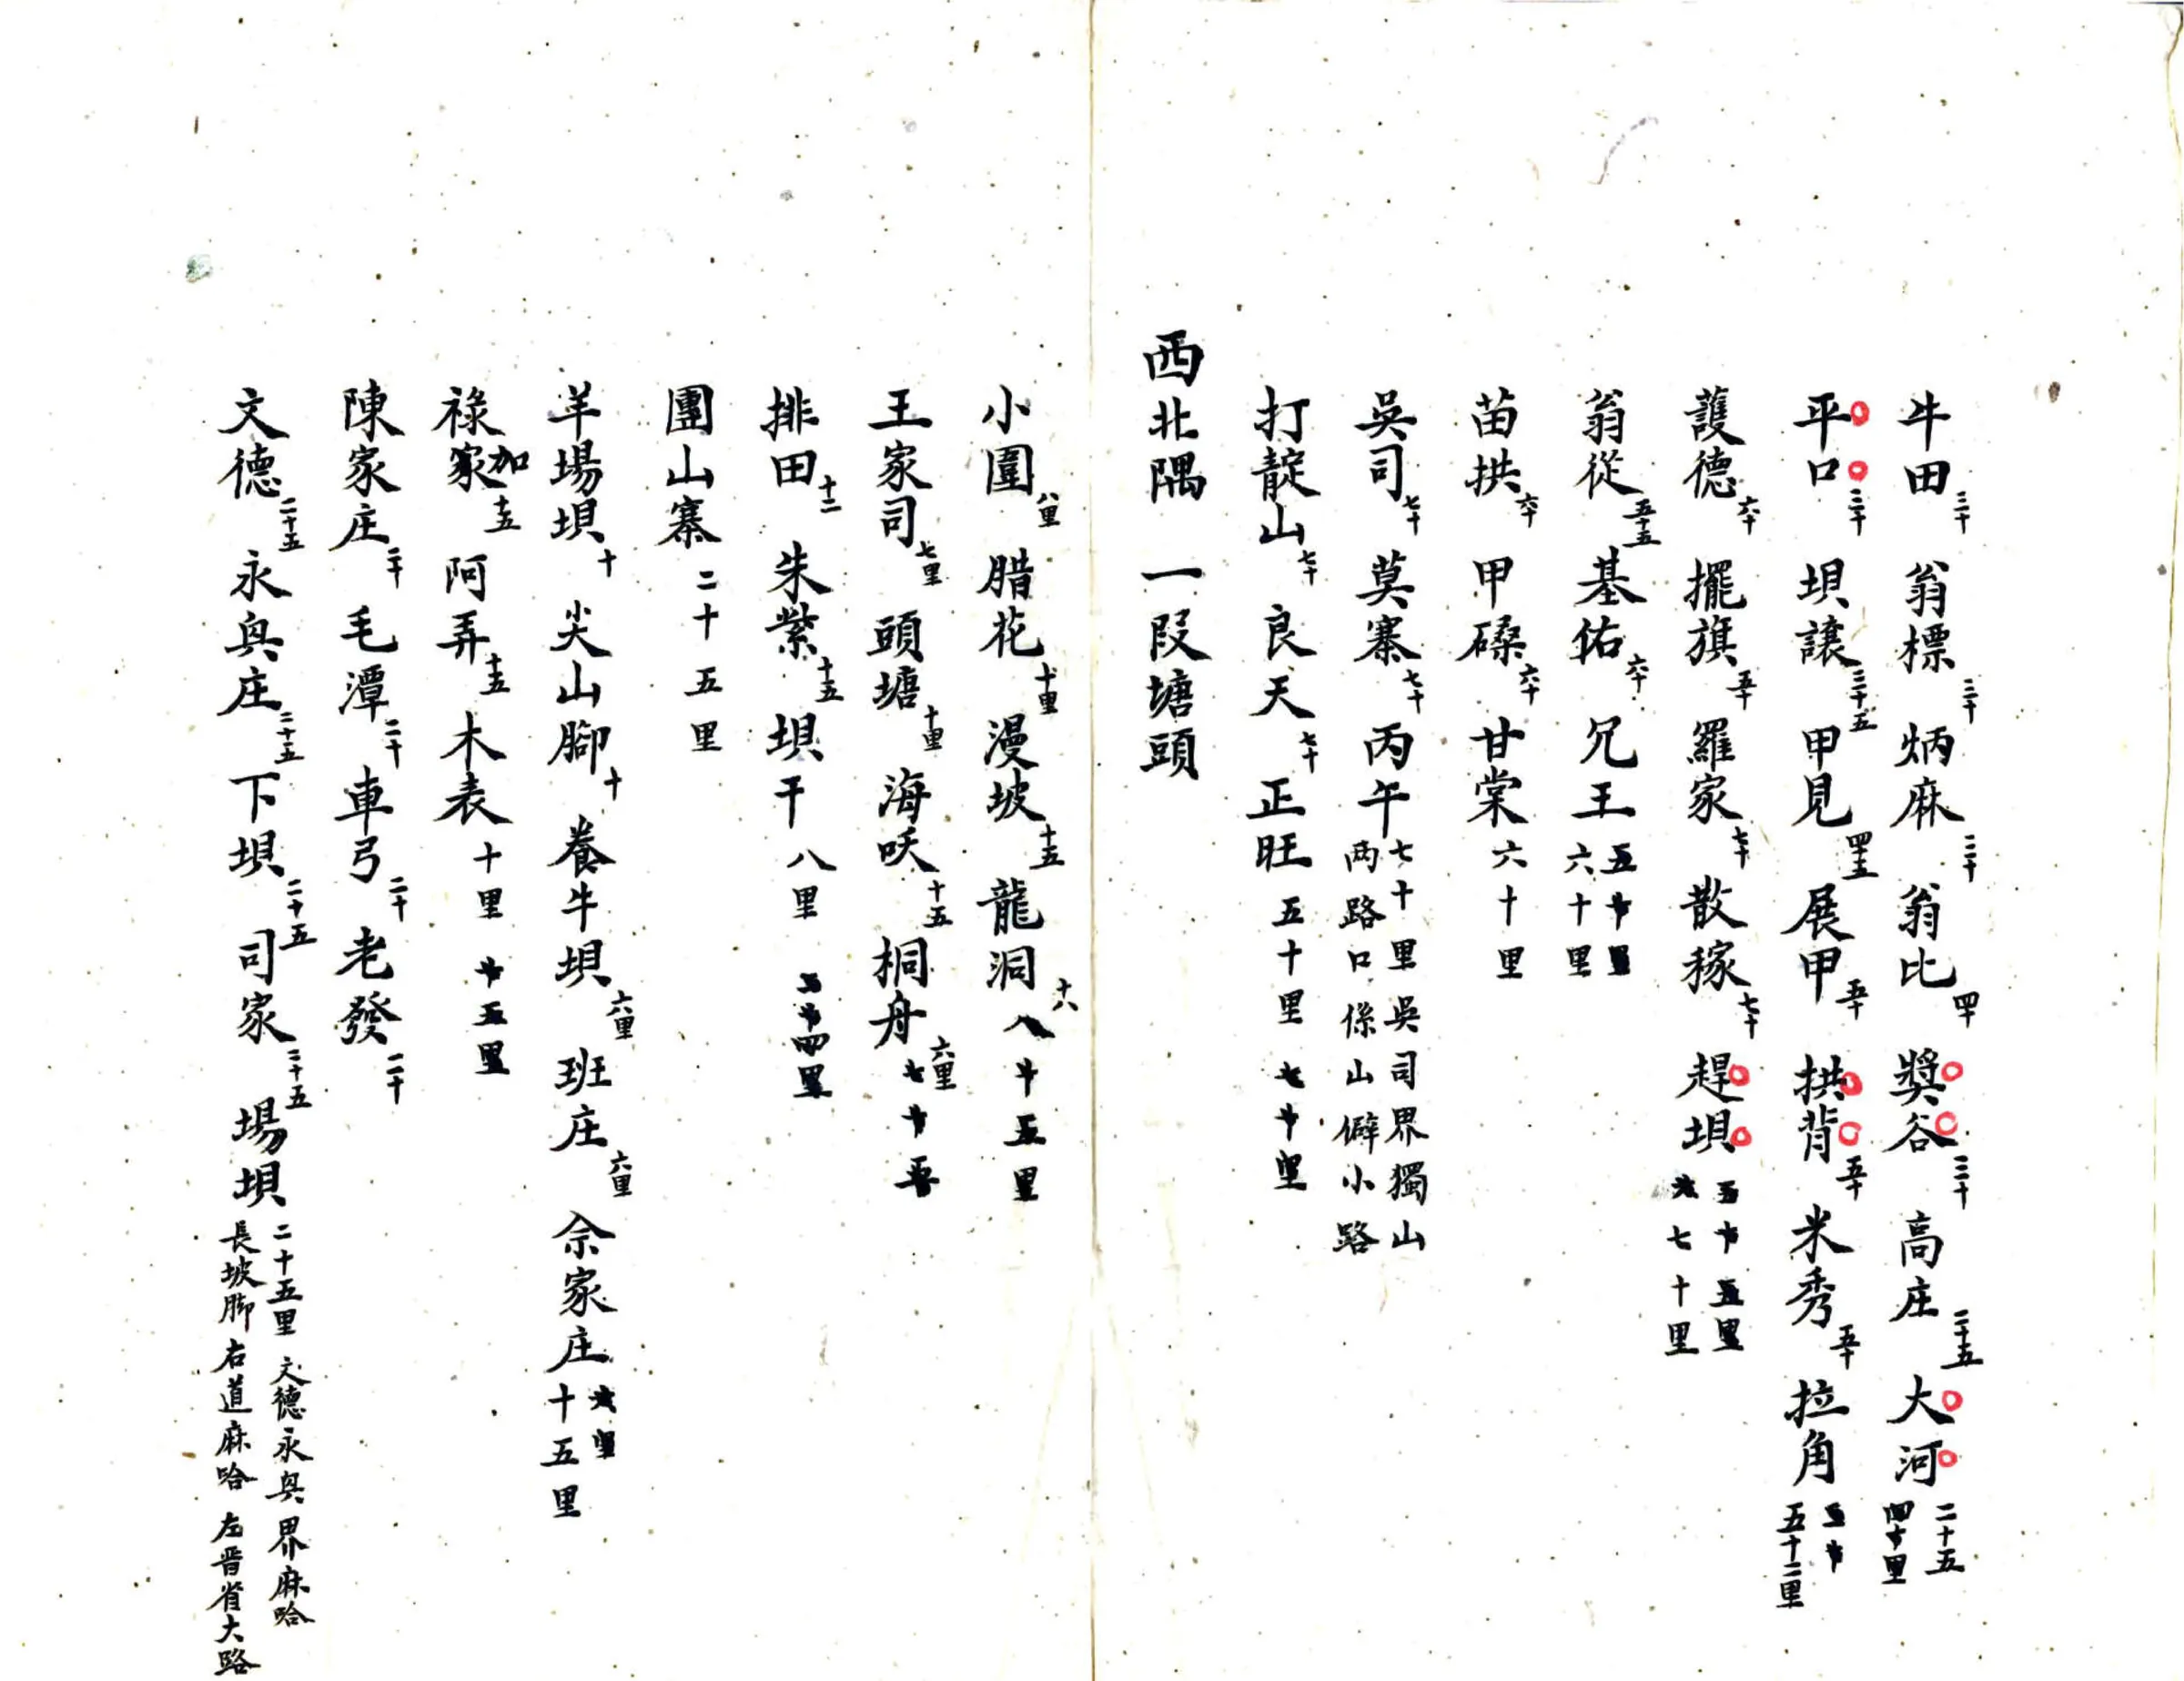 牛田三十 翁標三十 炳麻三十 翁比四十 獎谷三十 高庄二十五 大河二十五 四十里
平口三十 坝讓三十五 甲見四十五 展甲五十 拱背五十 米秀五十 拉角五十 五十二里
䕶德六十 擺旗五十 羅家七十 散稼七十 趕坝五十五里 六七十里
翁從五十五 基佑六十 兄王五十里 六十里
苗拱六十 甲磉六十 甘棠六十里
吳司七十 莫寨七十 丙午七十里 吳司界獨山 两路口係山僻小路
打靛山七十 良天七十 正旺五十里 七十里
西北隅 一段塘頭
小圍八里 腊花十里 漫坡十五 龍洞十八 八十五里
王家司七里 頭塘十里 海呋十五 桐舟六里 七十五
排田十二 朱紫十五 坝干八里 五十四里
團山寨二十五里
羊場坝十 尖山腳十 養牛坝六里 班庄六里 佘家庄六里 十五里
祿家加十五 阿弄十五 木表十里 十五里
陳家庄二十 毛潭二十 車弓二十 老發二十
文德二十五 永興庄二十五 下坝二十五 司家三十五 場坝二十五里 文德永興界麻哈 長坡腳右道麻哈 左晋省大路